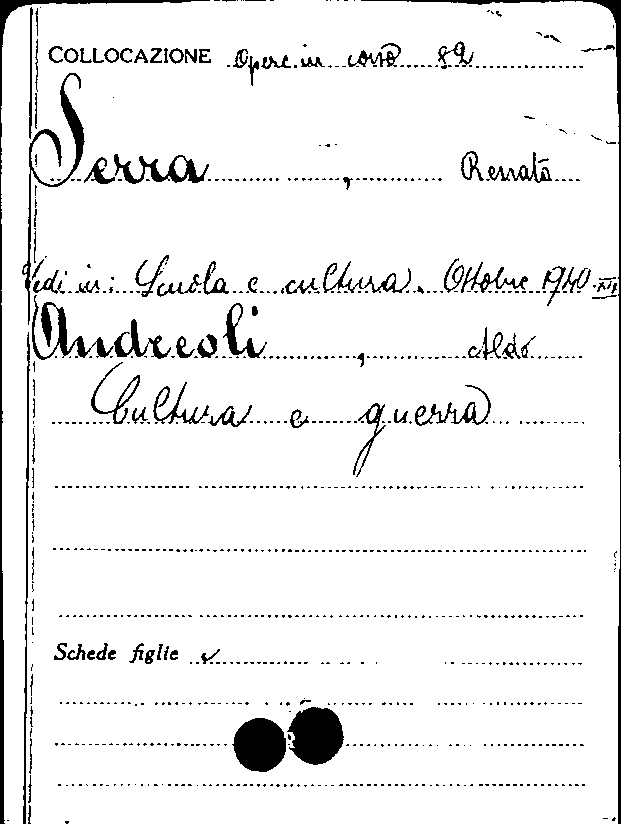 COLLOCAZIONE Opere in corso 82
Serra, Renato
Vedi in: Scuola e cultura. Ottobre 1940
Andreoli, Aldo
Cultura e guerra
Schede figlie ✓